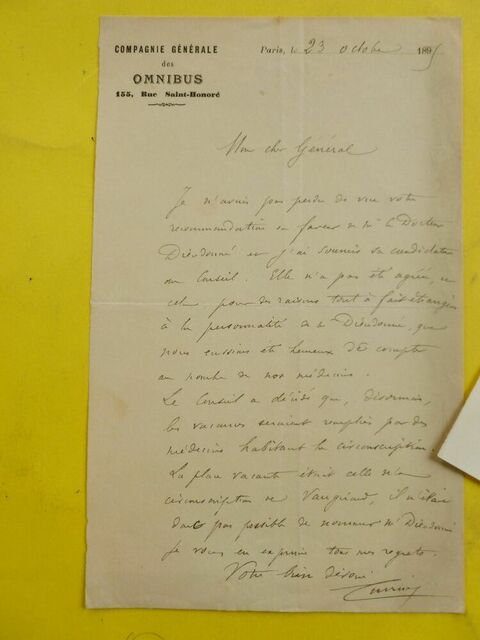 COMPAGNIE GÉNÉRALE
des
OMNIBUS
155, Rue Saint-Honoré
Paris, le 23 octobre 1895
Mon cher Général
Je n'avais pas perdu de vue votre
recommandation en faveur de Mr le Docteur
Dieudonné et j'ai soumis sa candidature
au Conseil. Elle n'a pas été agréée, et
cela, pour des raisons tout à fait étrangères
à la personnalité de Mr Dieudonné, que
nous eussions été heureux de compter
au nombre de nos médecins.
Le Conseil a décidé que, désormais,
les vacances seraient remplies par des
médecins habitant la circonscription.
La place vacante étant celle de la
circonscription de Vaugirard, il n'était
donc pas possible de nommer Mr Dieudonné
Je vous en exprime tous mes regrets.
Votre bien dévoué